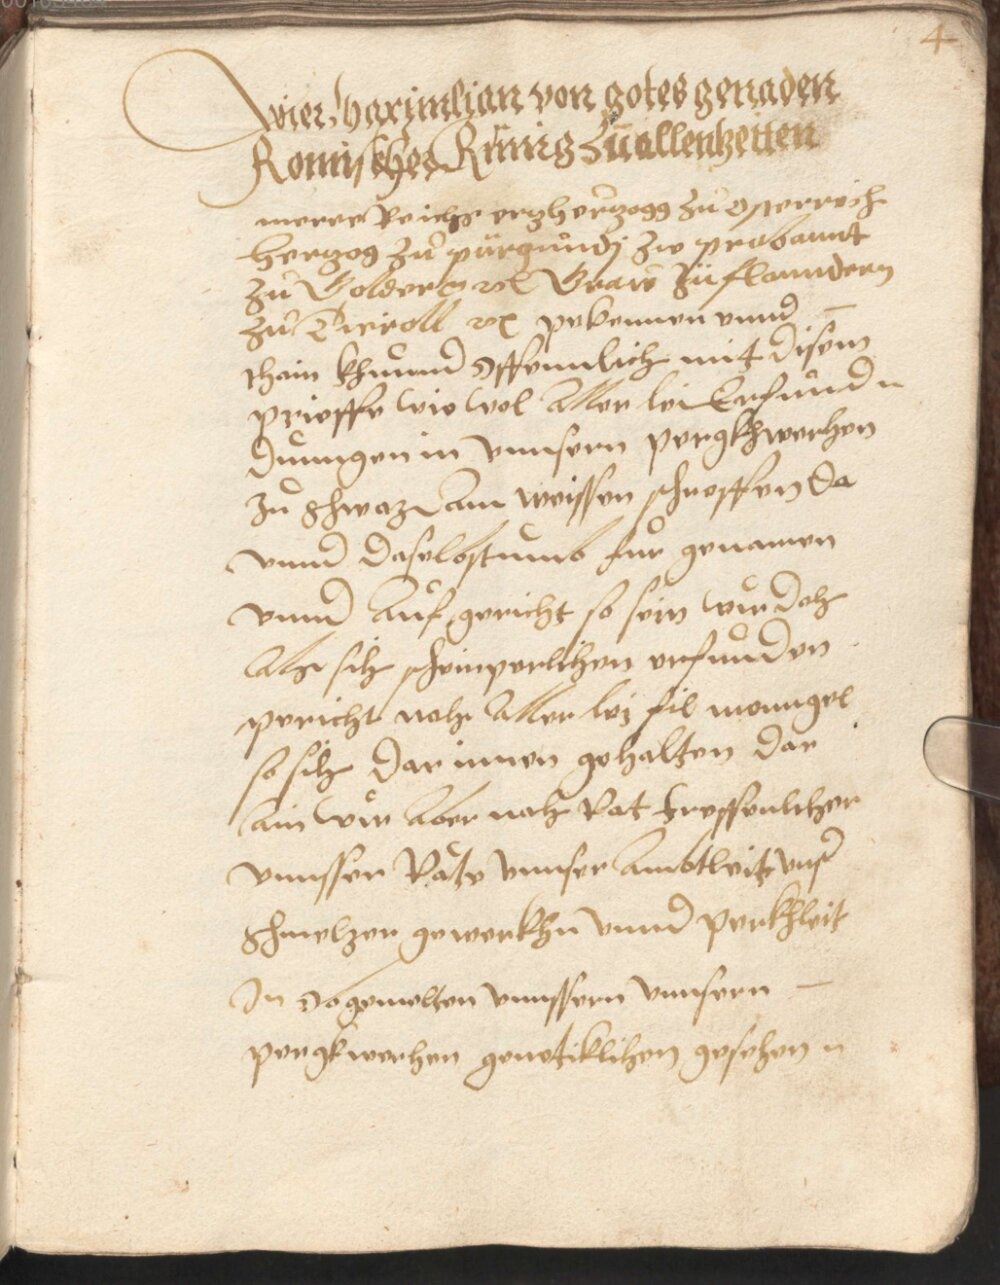 4
Wier Maximilian von gotes genaden
Romischer Künig zu allenzeitten
merer Reichs ertzhertzogg zu Osterreich
hertzog zu pürgundj zw prabannt
zu Geldern rc Graw zü flanndern
zu Tieroll rc pekennen vnnd
thain khuund offennlich mit disem
prieffe wie wol aller lei Erfund
dungen in vnnsern pergkhwerhen
zu Schwaz am weissen schroffen da
vnnd daselbst umb für genamen
vnnd auf gericht so sein wir doh
als sich scheinperlihen erfunden
pericht noh aller lei fil manngel
so sich dar innen gehalten dar
ain wir aber nach Rat treffenlicher
vnnsser Räte vnnser ambtleit vnsr
Schmelzer gewerkhn vnnd perkhleit
In obgemelten vnnssern vnnsern
pergkwerhen genotiklihen gesehen